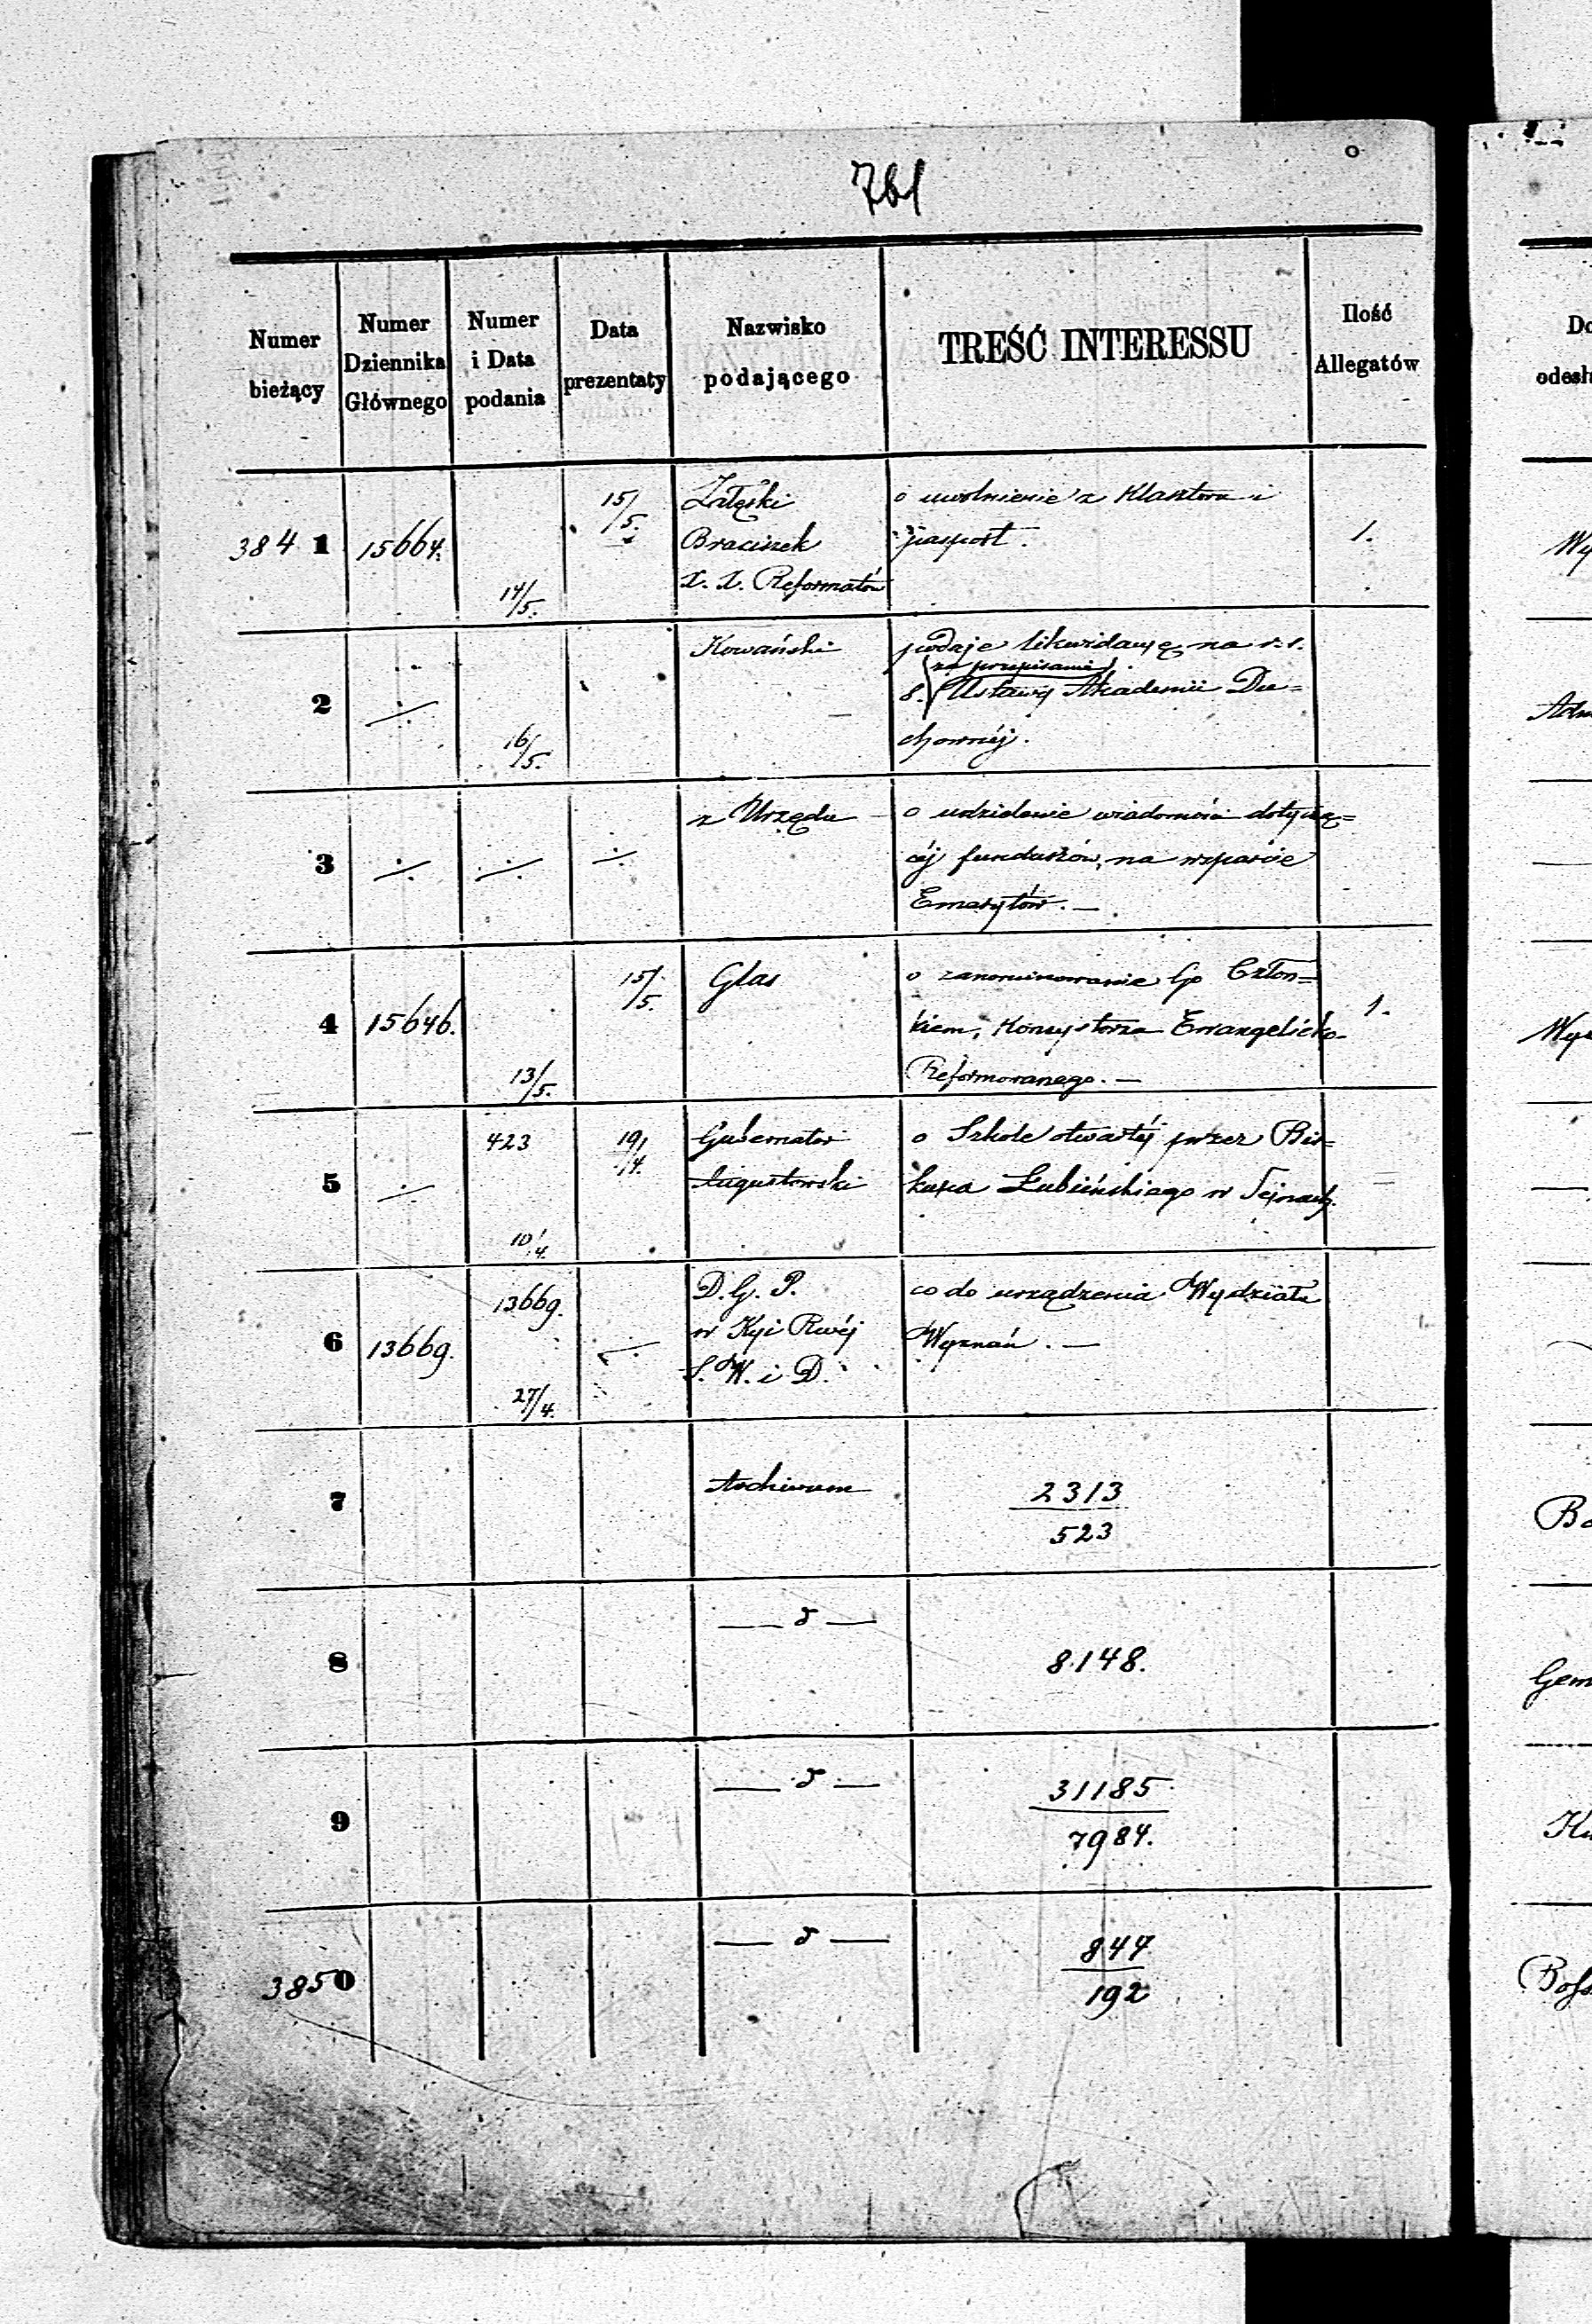 761
Numer bieżący
Numer Dziennika Głównego
Numer i Data podania
Data prezentaty
Nazwisko podającego
TREŚĆ INTERESSU
Ilość Allegatów
3841
15664.
14/5.
15/5.
Załęski
Braciszek
X. X. Reformatów
o uwolnienie z Klasztoru i
paszport.
1.
2
16/5.
Kowański
podaje likwidacyę na r. s.
(za przepisanie)
8. Ustawy Akademii Du=
chownéj.
3
z Urzędu
o udzielenie wiadomości dotyczą=
céj funduszów na wsparcie
Emerytów. —
4
15646.
13/5.
15/5.
Glas
o zanominowanie Go Człon=
kiem Konsystorza Ewangelicko-
Reformowanego. —
1.
5
423
10/4.
19/4.
Gubernator
Augustowski
o Szkole otwartéj przez Bis=
kupa Łubieńskiego w Sejnach.
6
13669.
13669.
27/4.
D. G. P.
w Kyi Rwéj
S. W. i D.
co do urządzenia Wydziału
Wyznań. —
7
Archiwum
2313
523
8
— d —
8148.
9
— d —
31185
7984.
3850
— d —
847
192